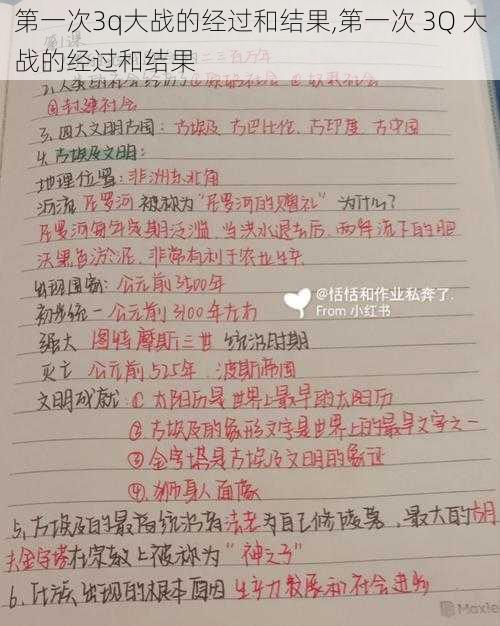 第一次3q大战的经过和结果,第一次 3Q 大
战的经过和结果
③封建社会
3、四大文明古国：古埃及 古巴比伦、古印度、古中国
4. 古埃及文明：
地理位置：非洲东北角
河流 尼罗河 被称为“尼罗河的赠礼” 为什么？
尼罗河每年定期泛滥，当洪水退去后，两岸流下的肥
沃黑色淤泥，非常有利于农业生产
出现国家：公元前3500年
初步统一 公元前3100年左右
@恬恬和作业私奔了.
From 小红书
强大 图特摩斯三世 统治时期
灭亡 公元前525年 波斯帝国
文明成就：① 太阳历是世界上最早的太阳历
② 古埃及的象形文字是世界上的最早文字之一
③ 金字塔是古埃及文明的象征
④ 狮身人面像
5、古埃及的最高统治者法老为自己修陵墓，最大的胡
夫金字塔在宗教上被称为“神之子”
6、氏族出现的根本原因 生产力发展和社会进步